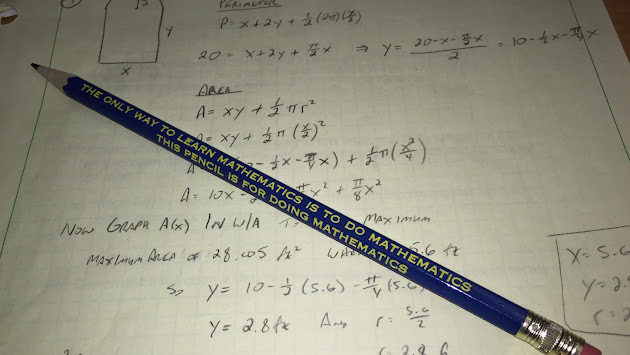 PERIMETER
P = x + 2y + ½(2π)(x/2)
20 = x + 2y + π/2 x ⇒ y = (20 - x - π/2 x)/2 = 10 - ½x - π/4 x
y
x
AREA
A = xy + ½πr²
= xy + ½π(x/2)²
- ½x - π/4 x) + ½π(x²/4)
A = 10x - x² + π/8 x²
NOW GRAPH A(x) IN W/A MAXIMUM
MAXIMUM AREA OF 28.005 ft² 5.6 ft
So y = 10 - ½(5.6) - π/4(5.6
y = 2.8 ft AND r = 5.6/2
THE ONLY WAY TO LEARN MATHEMATICS IS TO DO MATHEMATICS
THIS PENCIL IS FOR DOING MATHEMATICS
x = 5.6
y = 2.
r = 2